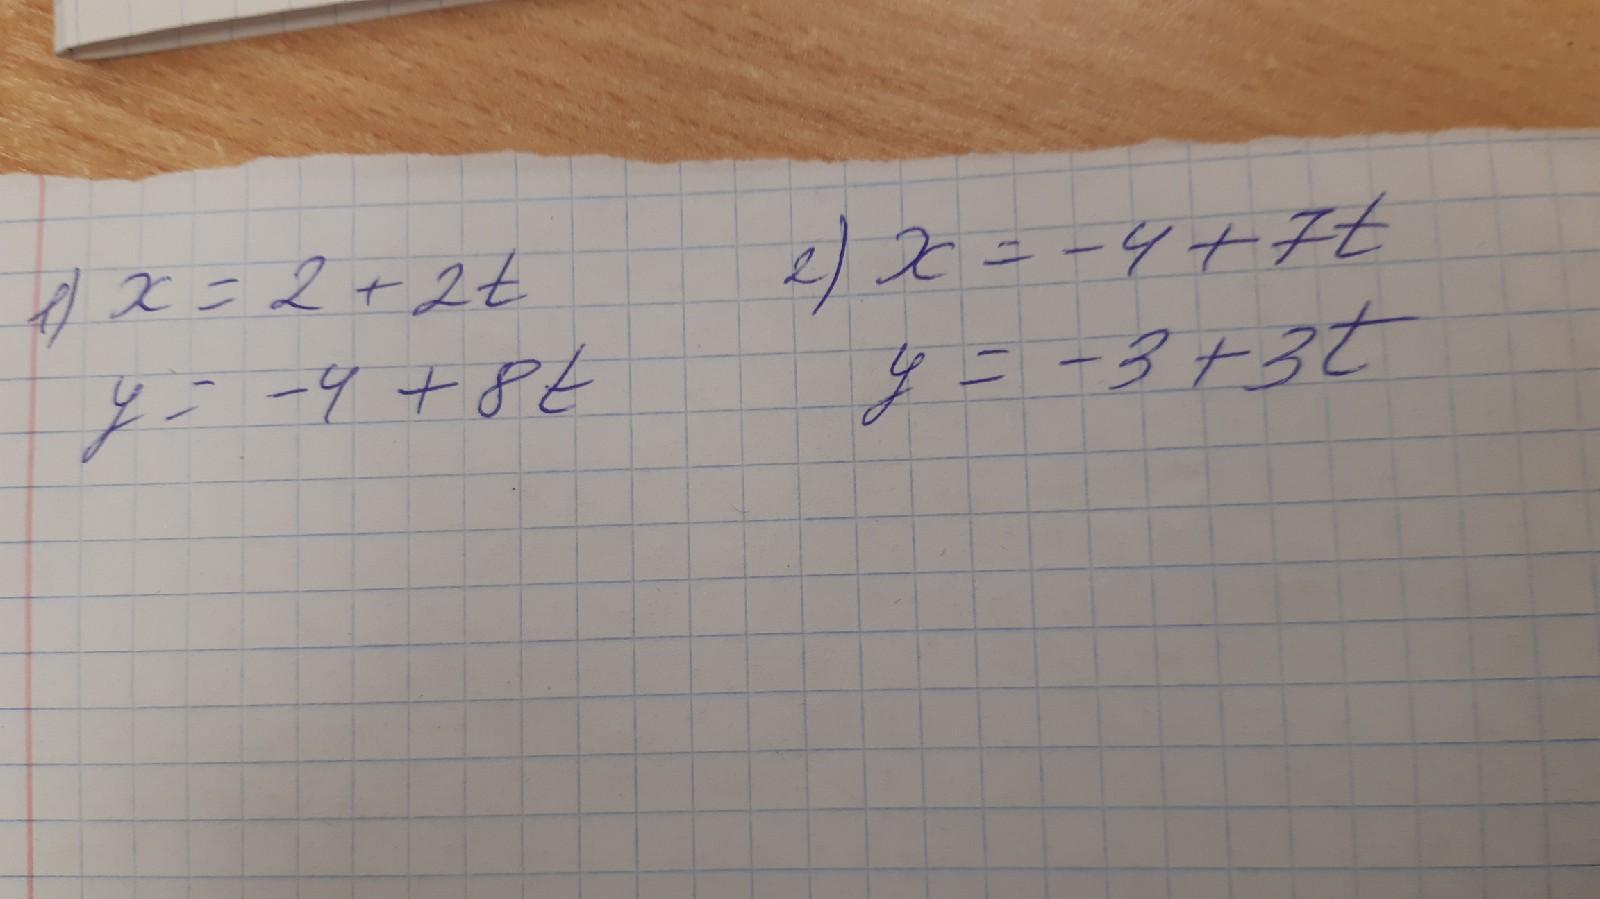 1) x = 2 + 2t
y = -4 + 8t
2) x = -4 + 7t
y = -3 + 3t